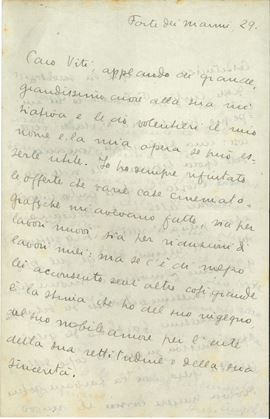 Forte dei Marmi 29.
Caro Viti applaudo di grande,
grandissimo cuore alla sua ini
ziativa e le do volentieri il mio
nome e la mia opera se può es-
serle utile. Io ho sempre rifiutato
le offerte che varie case cinemato-
grafiche mi avevano fatto, sia per
lavori nuovi sia per riduzioni di
lavori miei: ma se c'è di mezzo
lei acconsento senz'altro così grande
è la stima che ho del suo ingegno
del suo nobile amore per l'arte
della sua rettitudine e della sua
sincerità.